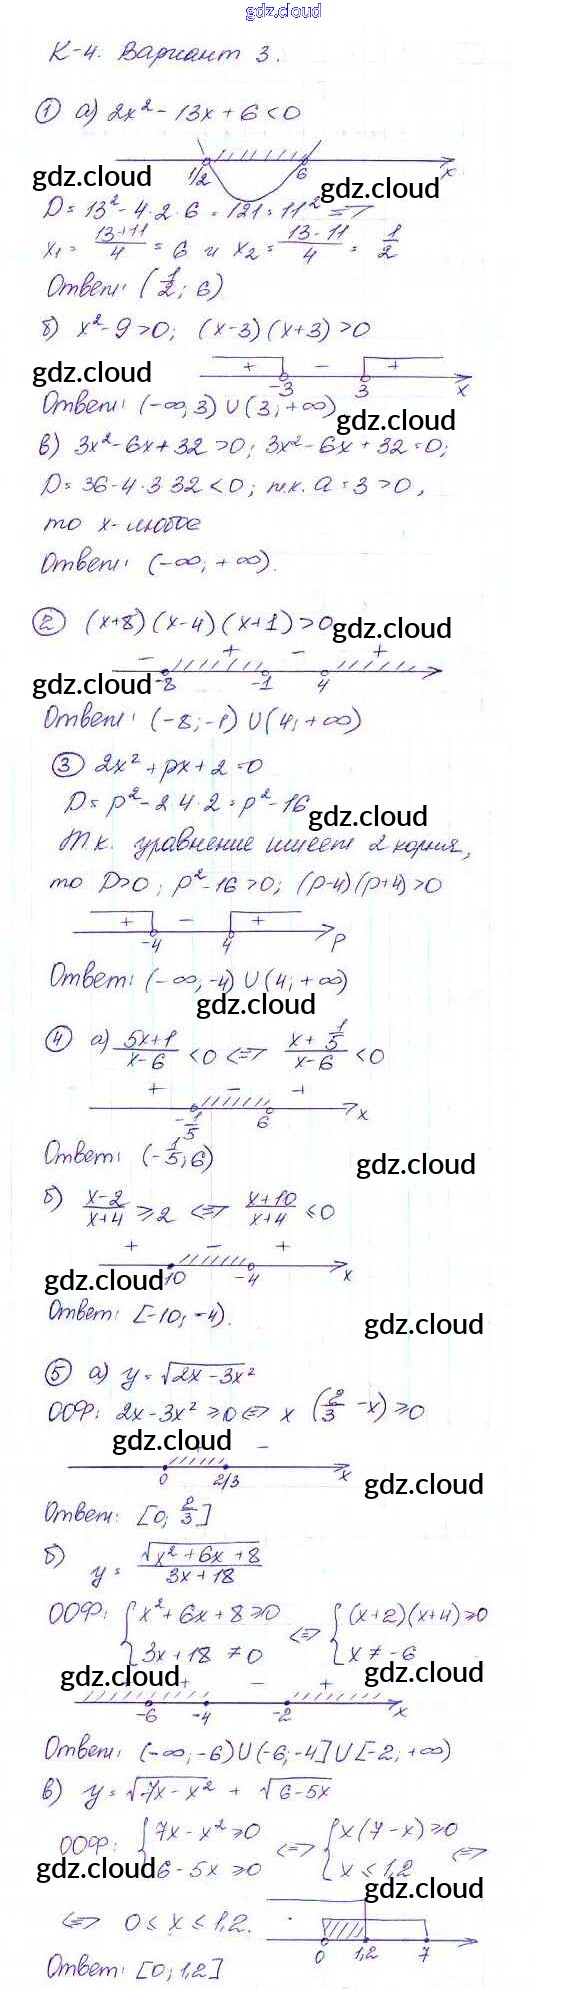 gdz.cloud
К-4. Вариант 3.
① а) 2x² - 13x + 6 < 0
1/2 6 x
gdz.cloud gdz.cloud
D = 13² - 4·2·6 = 121 = 11² =>
x₁ = (13+11)/4 = 6 и x₂ = (13-11)/4 = 1/2
Ответ: (1/2; 6)
б) x² - 9 > 0; (x-3)(x+3) > 0
gdz.cloud
+ - +
-3 3 x
Ответ: (-∞; 3) ∪ (3; +∞)
gdz.cloud
в) 3x² - 6x + 32 > 0; 3x² - 6x + 32 = 0;
D = 36 - 4·3·32 < 0; т.к. a = 3 > 0,
то x - любое
Ответ: (-∞; +∞).
② (x+8)(x-4)(x+1) > 0
gdz.cloud
- + - +
-8 -1 4
gdz.cloud
Ответ: (-8; -1) ∪ (4; +∞)
③ 2x² + px + 2 = 0
D = p² - 2·4·2 = p² - 16
gdz.cloud
Т.к. уравнение имеет 2 корня,
то D > 0; p² - 16 > 0; (p-4)(p+4) > 0
+ - +
-4 4 p
Ответ: (-∞; -4) ∪ (4; +∞)
gdz.cloud
④ а) (5x+1)/(x-6) < 0 <=> (x + 1/5)/(x-6) < 0
+ - +
-1/5 6 x
Ответ: (-1/5; 6)
gdz.cloud
б) (x-2)/(x+4) ≥ 2 <=> (x+10)/(x+4) ≤ 0
+ - +
-10 -4 x
gdz.cloud
Ответ: [-10; -4).
gdz.cloud
⑤ а) y = √(2x - 3x²)
ООФ: 2x - 3x² ≥ 0 <=> x (2/3 - x) ≥ 0
gdz.cloud
+ -
0 2/3 x
gdz.cloud
Ответ: [0; 2/3]
б) y = √(x² + 6x + 8)/(3x + 18)
ООФ: { x² + 6x + 8 ≥ 0 <=> { (x+2)(x+4) ≥ 0
3x + 18 ≠ 0 x ≠ -6
gdz.cloud gdz.cloud
+ - +
-6 -4 -2 x
Ответ: (-∞; -6) ∪ (-6; -4] ∪ [-2; +∞)
в) y = √(7x - x²) + √(6 - 5x)
ООФ: { 7x - x² ≥ 0 <=> { x(7-x) ≥ 0
6 - 5x ≥ 0 x ≤ 1,2 <=>
gdz.cloud gdz.cloud
<=> 0 ≤ x ≤ 1,2.
0 1,2 7
Ответ: [0; 1,2]